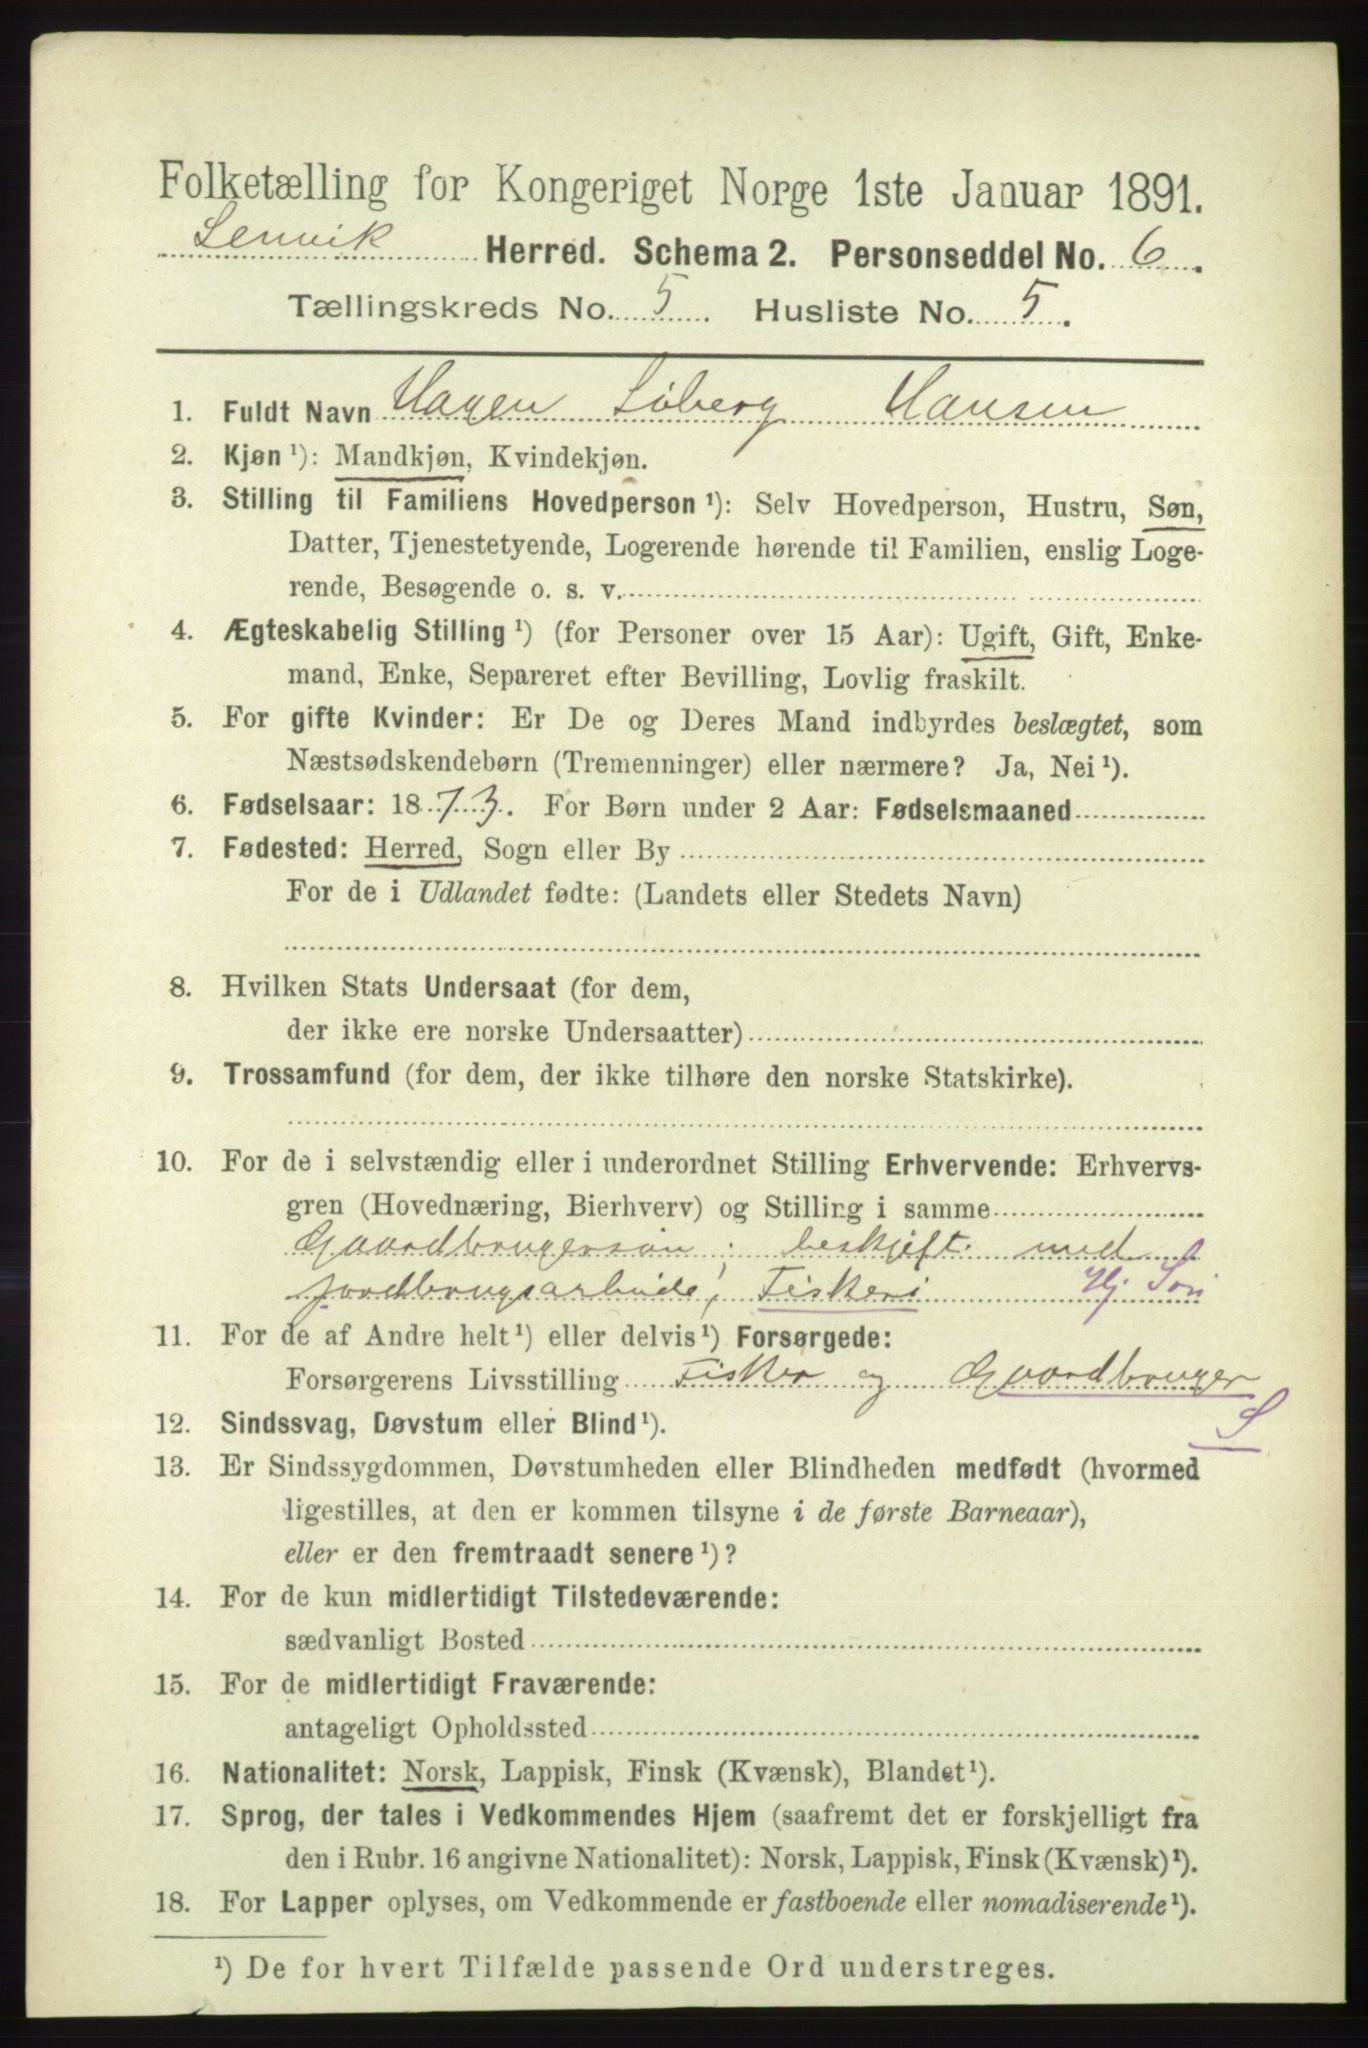 Folketælling for Kongeriget Norge 1ste Januar 1891.
Lenvik Herred. Schema 2. Personseddel No. 6.
Tællingskreds No. 5. Husliste No. 5.
1. Fuldt Navn Hagen Søberg Hansen
2. Kjøn ¹): Mandkjøn, Kvindekjøn.
3. Stilling til Familiens Hovedperson ¹): Selv Hovedperson, Hustru, Søn,
Datter, Tjenestetyende, Logerende hørende til Familien, enslig Loge-
rende, Besøgende o. s. v.
4. Ægteskabelig Stilling ¹) (for Personer over 15 Aar): Ugift, Gift, Enke-
mand, Enke, Separeret efter Bevilling, Lovlig fraskilt.
5. For gifte Kvinder: Er De og Deres Mand indbyrdes beslægtet, som
Næstsødskendebørn (Tremenninger) eller nærmere? Ja, Nei ¹).
6. Fødselsaar: 1873. For Børn under 2 Aar: Fødselsmaaned
7. Fødested: Herred, Sogn eller By
For de i Udlandet fødte: (Landets eller Stedets Navn)
8. Hvilken Stats Undersaat (for dem,
der ikke ere norske Undersaatter)
9. Trossamfund (for dem, der ikke tilhøre den norske Statskirke).
10. For de i selvstændig eller i underordnet Stilling Erhvervende: Erhvervs-
gren (Hovednæring, Bierhverv) og Stilling i samme
Gaardbrugersøn, beskjeft. med
jordbrugsarbeide, Fiskeri Hj Søn
11. For de af Andre helt ¹) eller delvis ¹) Forsørgede:
Forsørgerens Livsstilling Fisker og Gaardbruger
S
12. Sindssvag, Døvstum eller Blind ¹).
13. Er Sindssygdommen, Døvstumheden eller Blindheden medfødt (hvormed
ligestilles, at den er kommen tilsyne i de første Barneaar),
eller er den fremtraadt senere ¹)?
14. For de kun midlertidigt Tilstedeværende:
sædvanligt Bosted
15. For de midlertidigt Fraværende:
antageligt Opholdssted
16. Nationalitet: Norsk, Lappisk, Finsk (Kvænsk), Blandet ¹).
17. Sprog, der tales i Vedkommendes Hjem (saafremt det er forskjelligt fra
den i Rubr. 16 angivne Nationalitet): Norsk, Lappisk, Finsk (Kvænsk) ¹).
18. For Lapper oplyses, om Vedkommende er fastboende eller nomadiserende ¹).
¹) De for hvert Tilfælde passende Ord understreges.